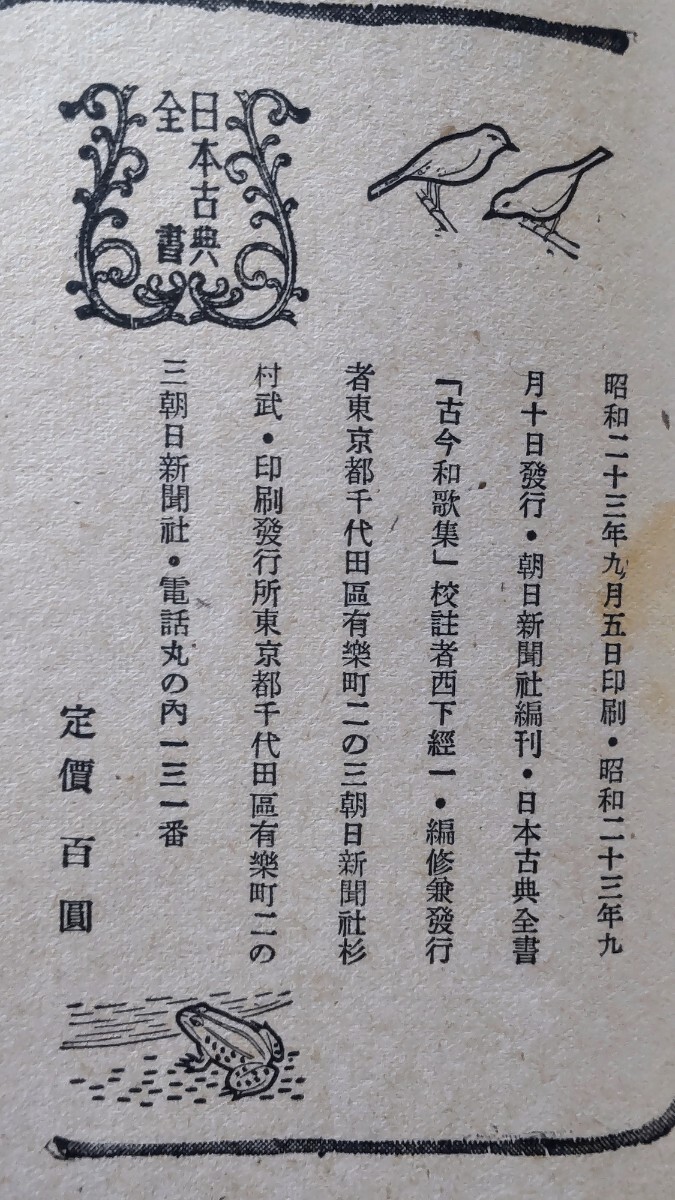 昭和二十三年九月五日印刷・昭和二十三年九
月十日發行・朝日新聞社編刊・日本古典全書
「古今和歌集」校註者西下經一・編修兼發行
者東京都千代田區有樂町二の三朝日新聞社杉
村武・印刷發行所東京都千代田區有樂町二の
三朝日新聞社・電話丸の內一三一番
定價百圓
日本古典
全書